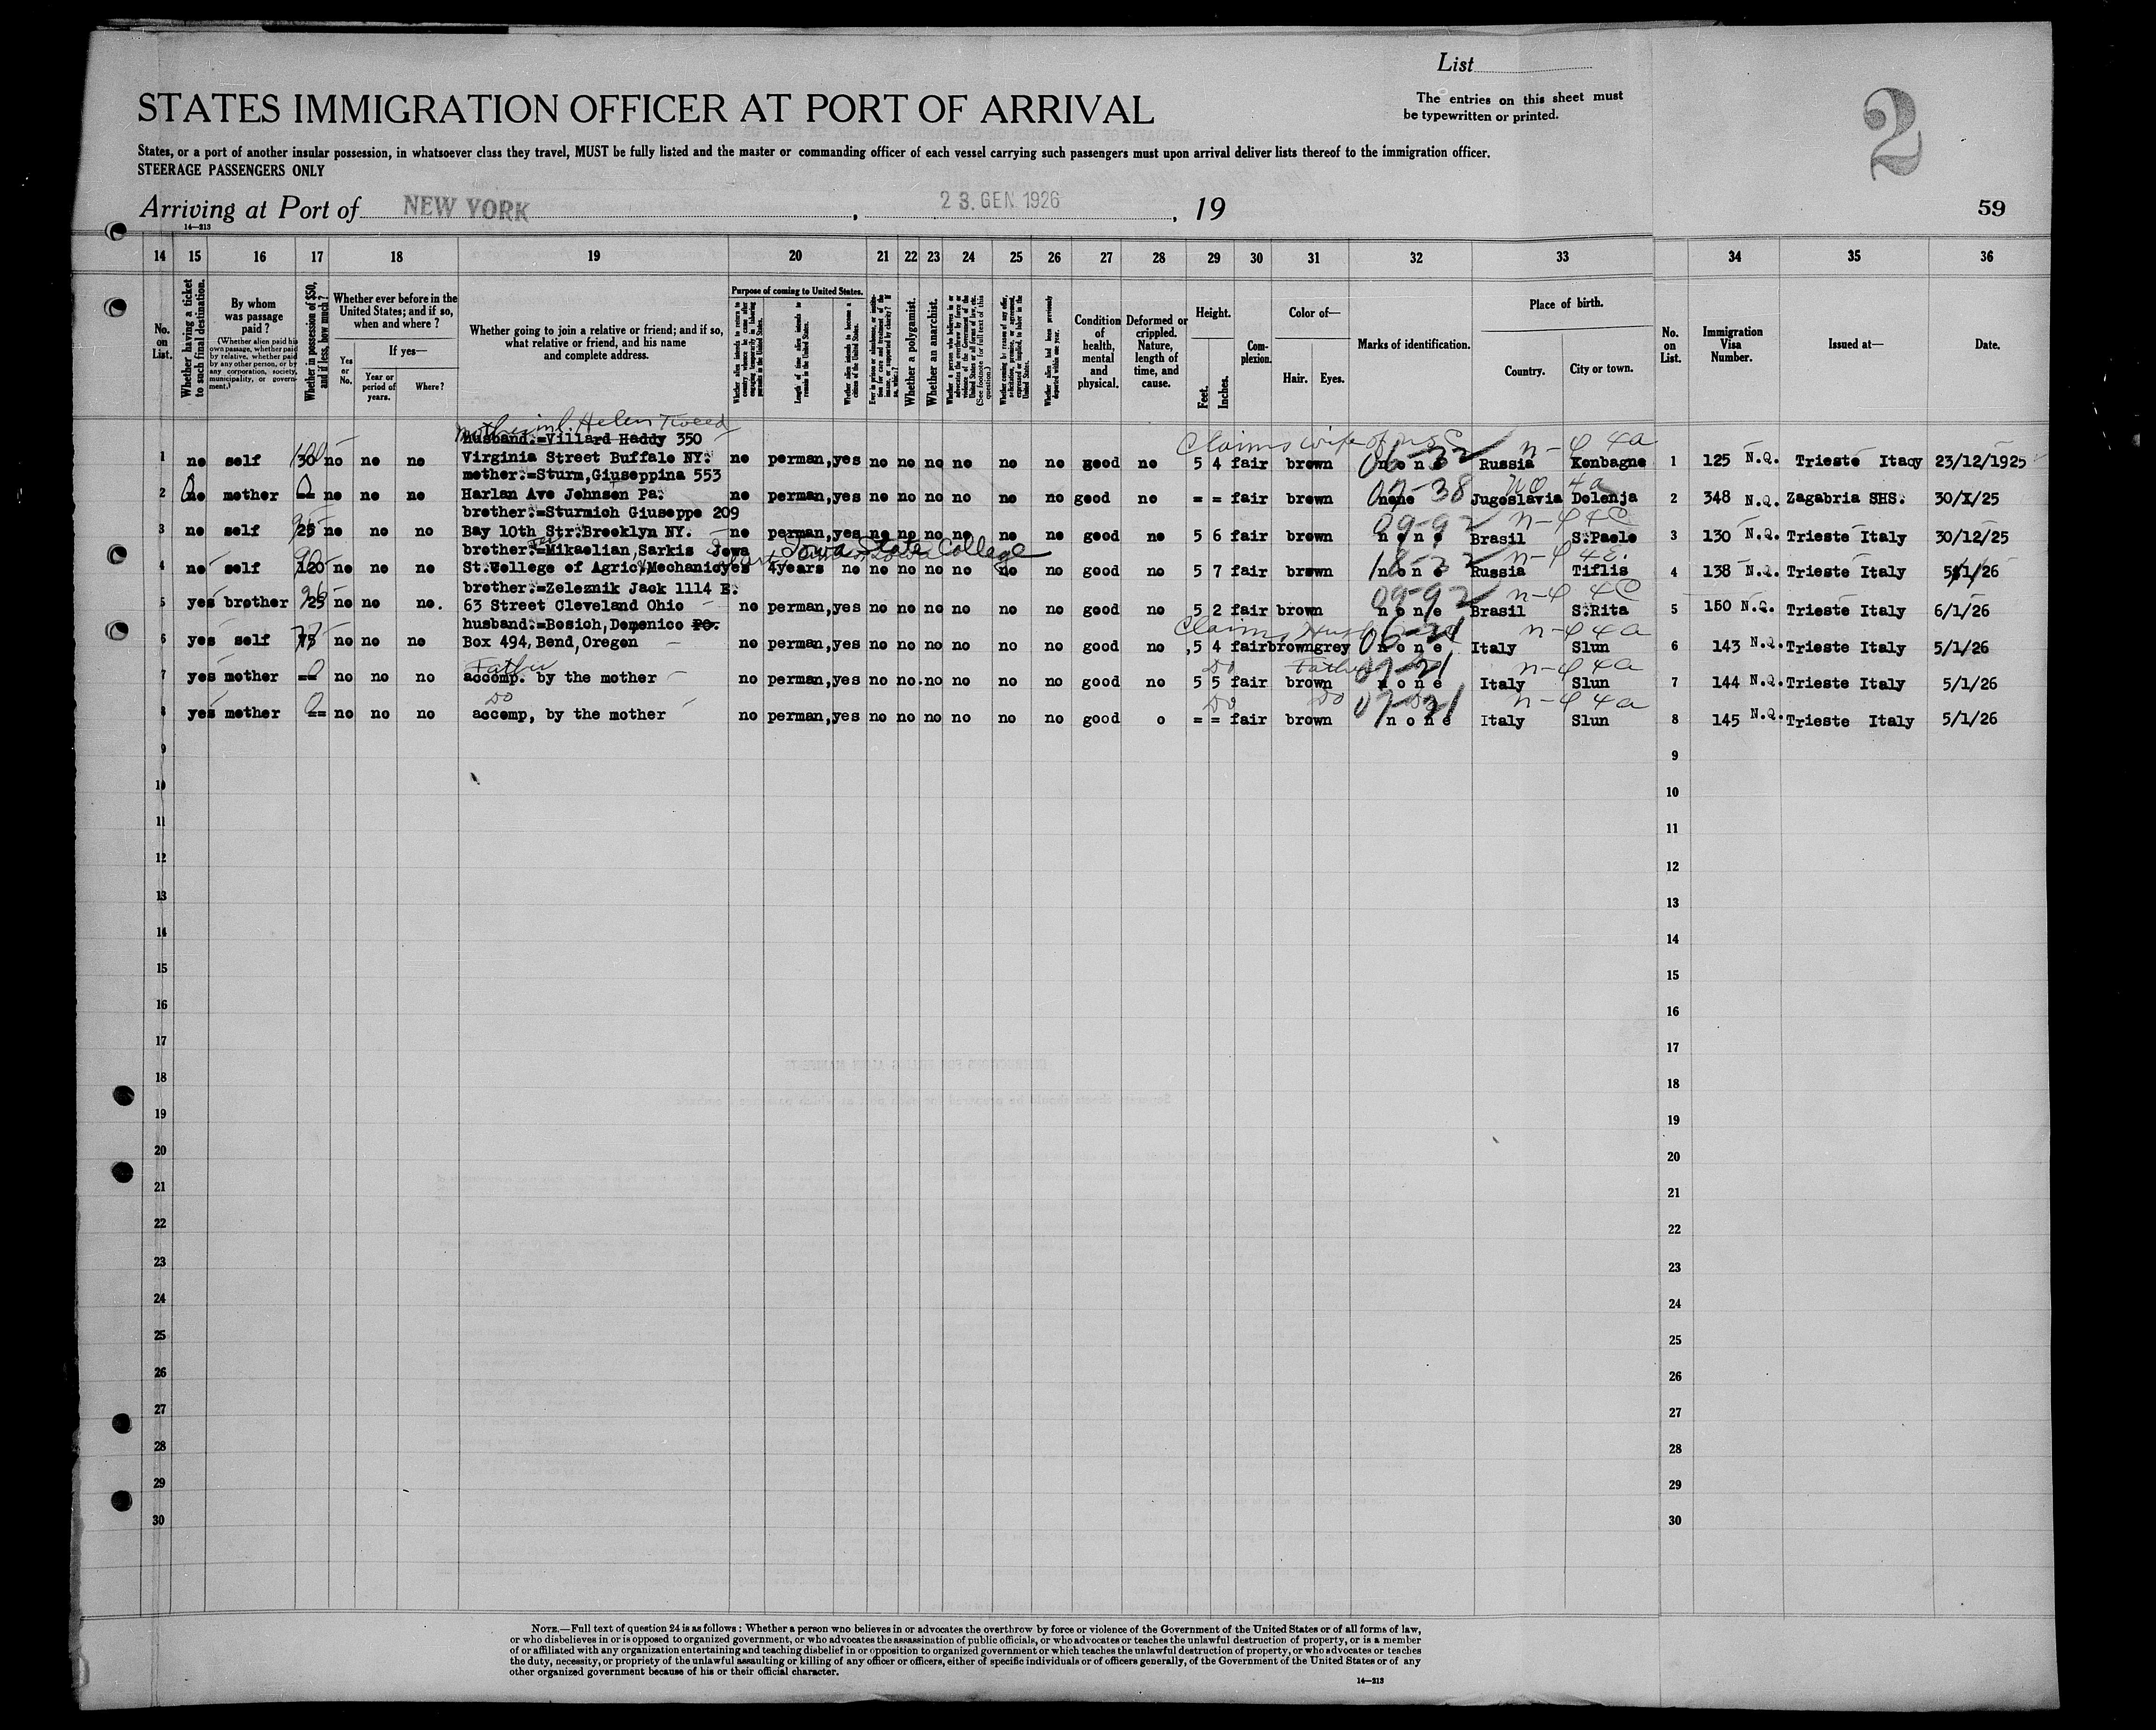 List
STATES IMMIGRATION OFFICER AT PORT OF ARRIVAL
The entries on this sheet must
be typewritten or printed.
2
States, or a port of another insular possession, in whatsoever class they travel, MUST be fully listed and the master or commanding officer of each vessel carrying such passengers must upon arrival deliver lists thereof to the immigration officer.
STEERAGE PASSENGERS ONLY
Arriving at Port of NEW YORK, 23. GEN. 1926, 19
59
14—213
14 15 16 17 18 19 20 21 22 23 24 25 26 27 28 29 30 31 32 33 34 35 36
No. on List.
Whether having a ticket to such final destination.
By whom was passage paid?
(Whether alien paid his own passage, whether paid by relative, whether paid by any other person, or by any corporation, society, municipality, or government.)
Whether in possession of $50, and if less, how much?
Whether ever before in the United States; and if so, when and where?
If yes—
Yes or No.
Year or period of years.
Where?
Whether going to join a relative or friend; and if so, what relative or friend, and his name and complete address.
Purpose of coming to United States.
Length of time alien intends to remain in the United States.
Whether alien intends to become a citizen of the United States.
Whether a polygamist.
Whether an anarchist.
Whether alien had been previously deported within one year.
Condition of health, mental and physical.
Deformed or crippled. Nature, length of time, and cause.
Height.
Feet. Inches.
Complexion.
Color of—
Hair. Eyes.
Marks of identification.
Place of birth.
Country. City or town.
No. on List.
Immigration Visa Number.
Issued at—
Date.
mother inl. Helen Tweed
husband.=Villard Haddy 350
Claims wife of
n-q 4a
1 no self 30 no no no Virginia Street Buffalo NY. no perman,yes no no no no no no good no 5 4 fair brown none 06-32 Russia Konbagne 1 125 N.Q. Trieste Itaoy 23/12/1925
mother.=Sturm,Giuseppina 553
2 no mother == no no no Harlan Ave Johnson Pa. no perman,yes no no no no no no good no = = fair brown none 07-38 Jugoslavia Dolenja 2 348 N.Q. Zagabria SHS. 30/X/25
brother.=Sturmich Giuseppe 209
09-92 n-q 4c
3 no self 25 no no no Bay 10th Str.Brooklyn NY. no perman,yes no no no no no no good no 5 6 fair brown none Brasil S.Paolo 3 130 N.Q. Trieste Italy 30/12/25
brother.=Mikaelian,Sarkis Jowa
Iowa State College
n-q 4E.
4 no self 120 no no no St.College of Agric,Mechanic yes 4years no no no no no no no good no 5 7 fair brown none Russia Tiflis 4 138 N.Q. Trieste Italy 5/1/26
brother.=Zeleznik Jack 1114 E.
09-92 n-q 4c
5 yes brother 25 no no no. 63 Street Cleveland Ohio no perman,yes no no no no no no good no 5 2 fair brown none Brasil S.Rita 5 150 N.Q. Trieste Italy 6/1/26
husband.=Bosich,Domenico PO.
Claims
n-q 4a
6 yes self 75 no no no Box 494,Bend,Oregon no perman,yes no no no no no no good no 5 4 fair brown grey none Italy Slun 6 143 N.Q. Trieste Italy 5/1/26
Father Do Father 07-21 n-q 4a
7 yes mother == no no no accomp. by the mother no perman,yes no no. no no no no good no 5 5 fair brown none Italy Slun 7 144 N.Q. Trieste Italy 5/1/26
Do Do Do 07-21 n-q 4a
8 yes mother == no no no accomp, by the mother no perman,yes no no no no no no good o = = fair brown none Italy Slun 8 145 N.Q. Trieste Italy 5/1/26
9 9
10 10
11 11
12 12
13 13
14 14
15 15
16 16
17 17
18 18
19 19
20 20
21 21
22 22
23 23
24 24
25 25
26 26
27 27
28 28
29 29
30 30
NOTE.—Full text of question 24 is as follows: Whether a person who believes in or advocates the overthrow by force or violence of the Government of the United States or of all forms of law,
or who disbelieves in or is opposed to organized government, or who advocates the assassination of public officials, or who advocates or teaches the unlawful destruction of property, or is a member
of or affiliated with any organization entertaining and teaching disbelief in or opposition to organized government or which teaches the unlawful destruction of property, or who advocates or teaches
the duty, necessity, or propriety of the unlawful assaulting or killing of any officer or officers, either of specific individuals or of officers generally, of the Government of the United States or of any
other organized government because of his or their official character.
14—213